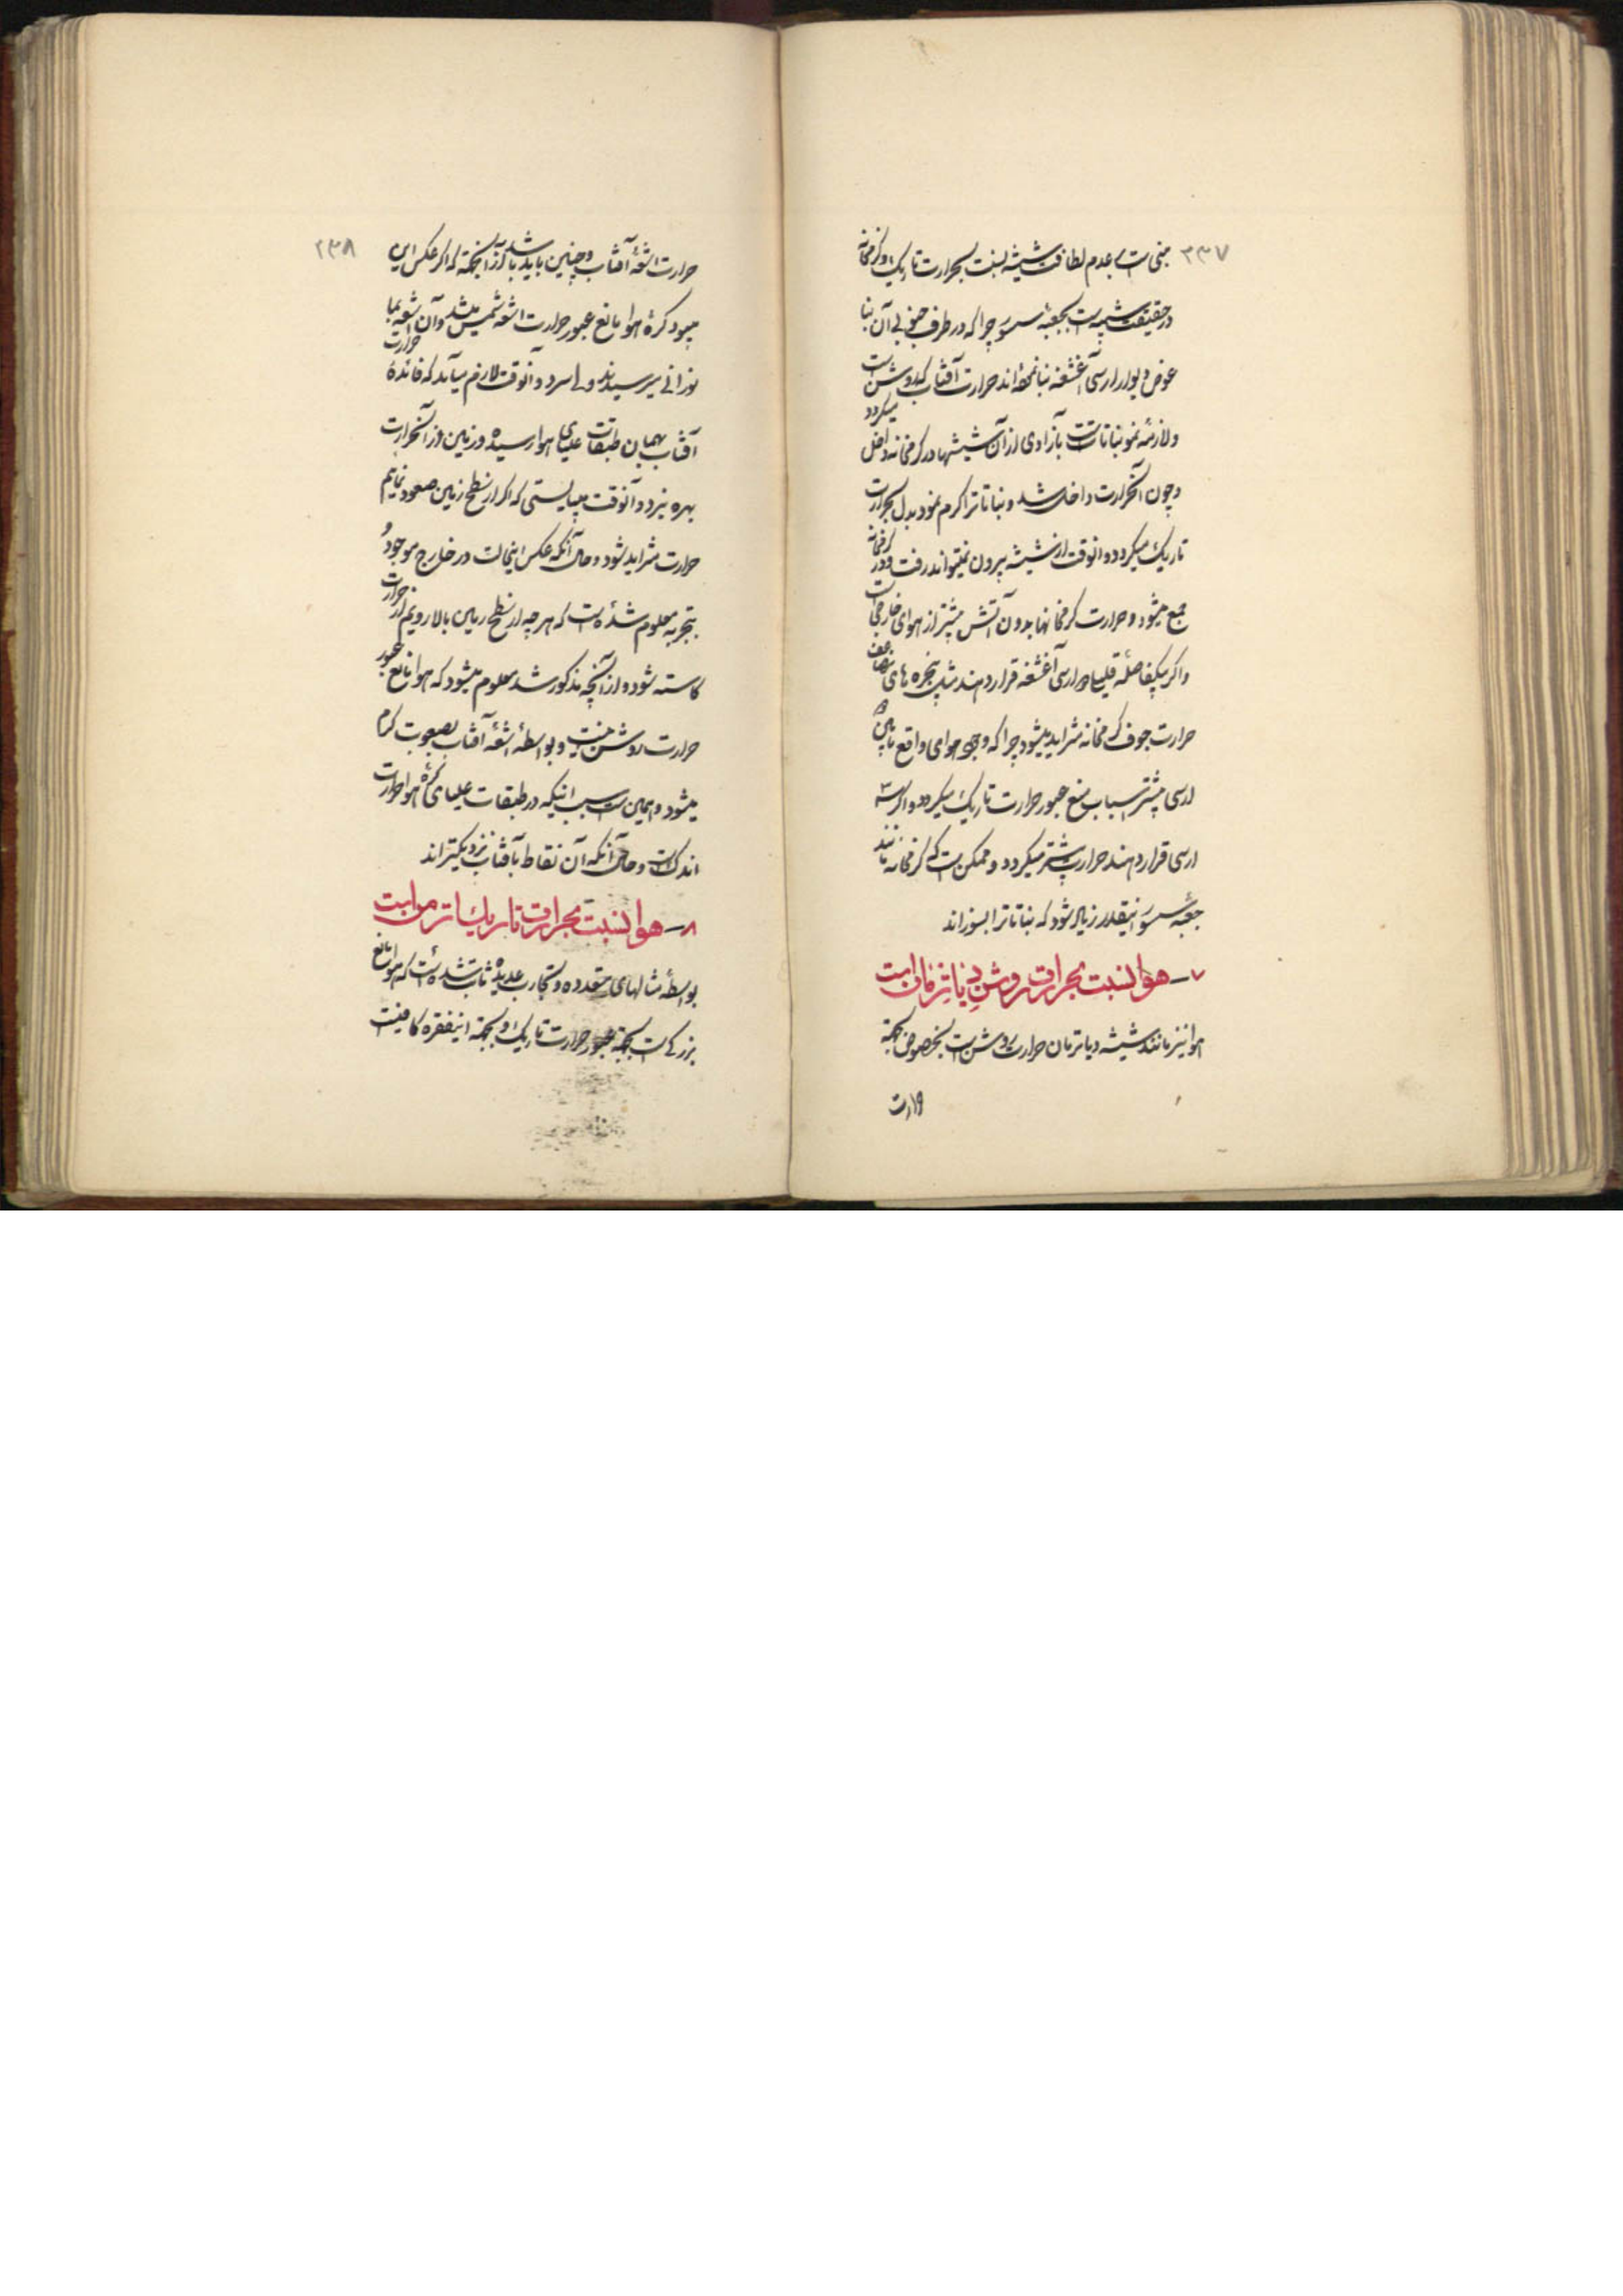 ۲۳۷
مبنی است بعدم لطافت شیشه نسبت بحرارت تاریک و گرمخانه
در حقیقت شبیه است بجعبهٔ سسور چرا که در طرف جنوبی آن بنا
عوض دیوار ارسی آغشغه بنا نموده‌اند حرارت آفتاب که روشن است
و لازمهٔ نمو نباتات است بآزادی از آن شیشها در گرمخانه داخل میگردد
و چون آنحرارت داخل شد و نباتات را گرم نمود بدل بحرارت
تاریک میگردد و انوقت از شیشه بیرون نمیتواند رفت و در گرمخانه
جمع میشود و حرارت گرمخانها بدون آتش بیشتر از هوای خارجی است
و اگر بیکفاصلهٔ قلیل دو ارسی آغشغه قرار دهند مثل پنجره های مضاعف
حرارت جوف گرمخانه متزاید میشود چرا که وجود هوای واقع مابین دو
ارسی بیشتر اسباب منع عبور حرارت تاریک میگردد و اگر سه
ارسی قرار دهند حرارت بیشتر میگردد و ممکن است که گرمخانه مانند
جعبهٔ سسور اینقدر زیاد شود که نباتات را بسوزاند
۷ – هوا نسبت بحرارت روشن دیاترمان است
هوا نیز مانند شیشه دیاترمان حرارت روشن است بخصوص بجهة
حرارت
۲۳۸
حرارت اشعهٔ آفتاب و چنین باید باشد از آنجهة که اگر عکس این
میبود کرهٔ هوا مانع عبور حرارت اشعه شمس میشد و آن اشعه بما
نورانی میرسیدند ولی سرد و آنوقت لازم میآید که فائدهٔ حرارت
آفتاب بهمان طبقات علیای هوا رسیده و زمین از آنحرارت
بهره نبرد و آنوقت میبایستی که اگر از سطح زمین صعود نمایم
حرارت متزاید شود و حال آنکه عکس اینحالت در خارج موجود و
بتجربه معلوم شده است که هر چه از سطح زمین بالا رویم از حرارت
کاسته شود و از آنچه مذکور شد معلوم میشود که هوا مانع عبور
حرارت روشن نیست و بواسطهٔ اشعهٔ آفتاب بصعوبت گرم
میشود و همین است سبب اینکه در طبقات علیای کرهٔ هوا حرارت
اندک است و حال آنکه آن نقاط بآفتاب نزدیکتراند
۸ – هوا نسبت بحرارت تاریک اترمن است
بواسطهٔ مثالهای متعدده و تجارب عدیده ثابت شده است که هوا مانع
بزرگی است بجهة عبور حرارت تاریک و بجهة اینفقره کافیست